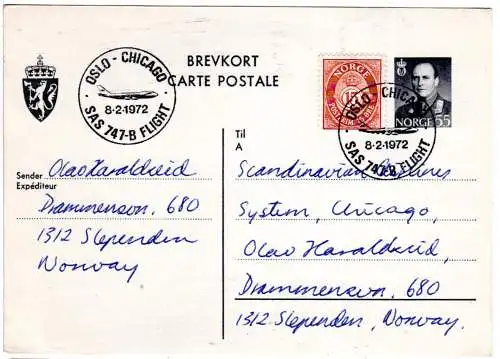 OSLO - CHICAGO
8-2-1972
SAS 747-B FLIGHT
BREVKORT
CARTE POSTALE
NORGE
15
OSLO - CHICAGO
8-2-1972
SAS 747-B FLIGHT
NORGE 55
Sender
Expéditeur
Olav Haraldseid
Drammensvn. 680
1312 Slependen
Norway
Til
A
Scandinavian Airlines
System, Chicago,
Olav Haraldseid,
Drammensvn. 680
1312 Slependen, Norway.